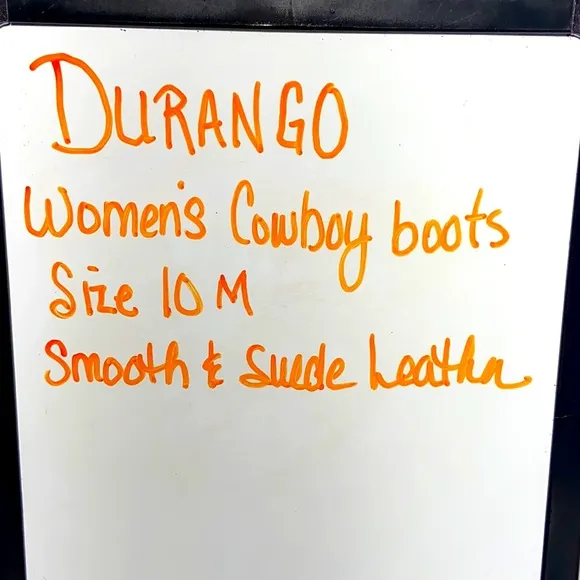 DURANGO
Women's Cowboy boots
Size 10 M
Smooth & Suede Leather